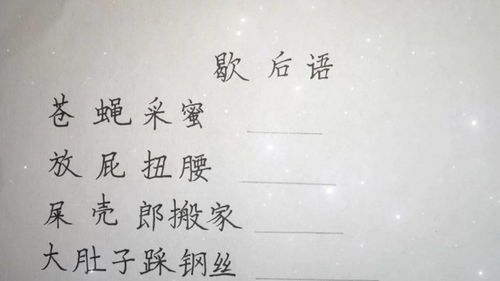 歇后语
苍蝇采蜜
放屁扭腰
屎壳郎搬家
大肚子踩钢丝